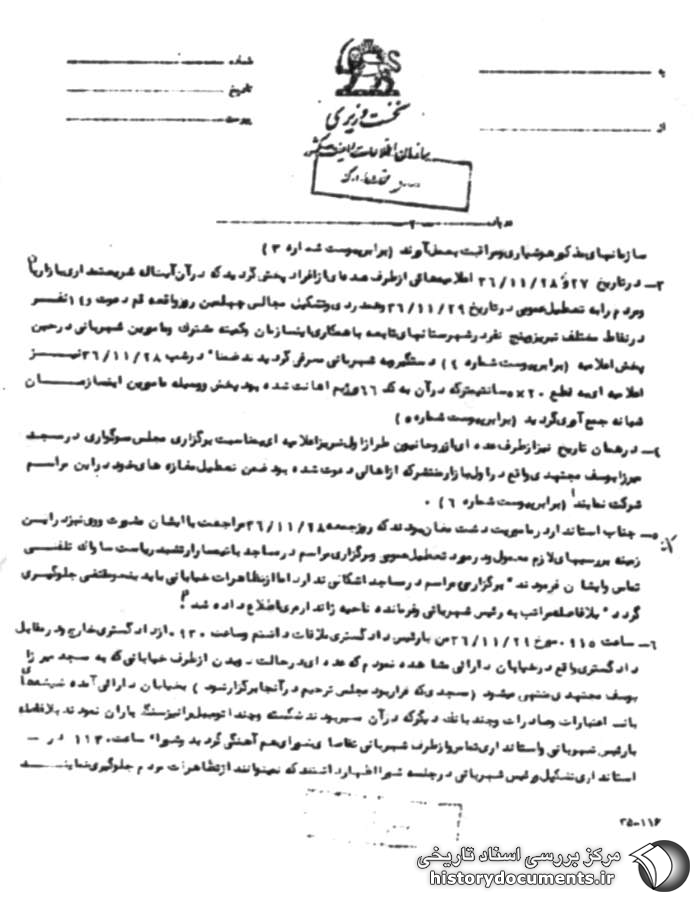 شماره
تاریخ
پیوست
به
از
نخست وزیری
سازمان اطلاعات و امنیت کشور
درباره
سازمانهای مذکور هوشیاری و مراقبت بعمل آورند (برابر پیوست شماره ۳)
۳ـ در تاریخ ۲۷ و ۳۶/۱۱/۲۸ اعلامیه هائی از طرف عده ای از افراد پخش گردید که در آن آیت اله شریعتمداری بازاریان
و مردم را به تعطیل عمومی در تاریخ ۳۶/۱۱/۲۹ و همدردی و تشکیل مجالس چهلمین روز واقعه قم دعوت و ۱۶ نفر
در نقاط مختلف تبریز و پنج نفر در شهرستانهای تابعه با همکاری این سازمان و کمیته مشترک و مامورین شهربانی در حین
پخش اعلامیه (برابر پیوست شماره ۴) دستگیر و به شهربانی معرفی گردیدند ضمنا" در شب ۳۶/۱۱/۲۸ نیز
اعلامیه ای به قطع ۲۰×۵ سانتیمتر که در آن به کد ۶۶ و رژیم اهانت شده بود پخش و وسیله مامورین این سازمان
شبانه جمع آوری گردید (برابر پیوست شماره ۵)
۴ـ در همان تاریخ نیز از طرف عده ای از روحانیون طراز اول تبریز اعلامیه ای بمناسبت برگزاری مجلس سوگواری در مسجد
میرزا یوسف مجتهدی واقع در اول بازار منتشر که از اهالی دعوت شده بود ضمن تعطیل مغازه های خود در این مراسم
شرکت نمایند (برابر پیوست شماره ۶) .
۵ـ جناب استاندار در ماموریت دشت مغان بودند که روز جمعه ۳۶/۱۱/۲۸ مراجعت با ایشان مشورت و وی نیز در این
زمینه بررسیهای لازم معمول و در مورد تعطیل عمومی و برگزاری مراسم در مساجد با تیمسار ارتشبد ریاست ساواک تلفنی
تماس و ایشان فرمودند " برگزاری مراسم در مساجد اشکالی ندارد اما از تظاهرات خیابانی باید بنحو مقتضی جلوگیری
گردد " بلافاصله مراتب به رئیس شهربانی و فرمانده ناحیه ژاندارمری اطلاع داده شد .
۶ـ ساعت ۰۹۱۵ مورخ ۳۶/۱۱/۲۹ من با رئیس دادگستری ملاقات داشتم و ساعت ۰۹۳۰ از دادگستری خارج و در مقابل
دادگستری واقع در خیابان دارائی مشاهده نمودم که عده ای در حالت دویدن از طرف خیابانی که به مسجد میرزا
یوسف مجتهدی منتهی میشود (مسجدی که قرار بود مجلس ترحیم در آنجا برگزار شود) بخیابان دارائی آمده شیشه های
بانک اعتبارات و صادرات و چند بانک دیگر که در آن مسیر بودند شکسته و چند اتومبیل را نیز سنگ باران نمودند بلافاصله
با رئیس شهربانی و استانداری تماس و از طرف شهربانی تقاضای شورای هم آهنگی گردید و شورا" ساعت ۱۱۳۰ در ـ
استانداری تشکیل و رئیس شهربانی در جلسه شورا اظهار داشتند که نمیتوانند از تظاهرات مردم جلوگیری نمایند
۳۵-۱۱۶
مرکز بررسی اسناد تاریخی
historydocuments.ir